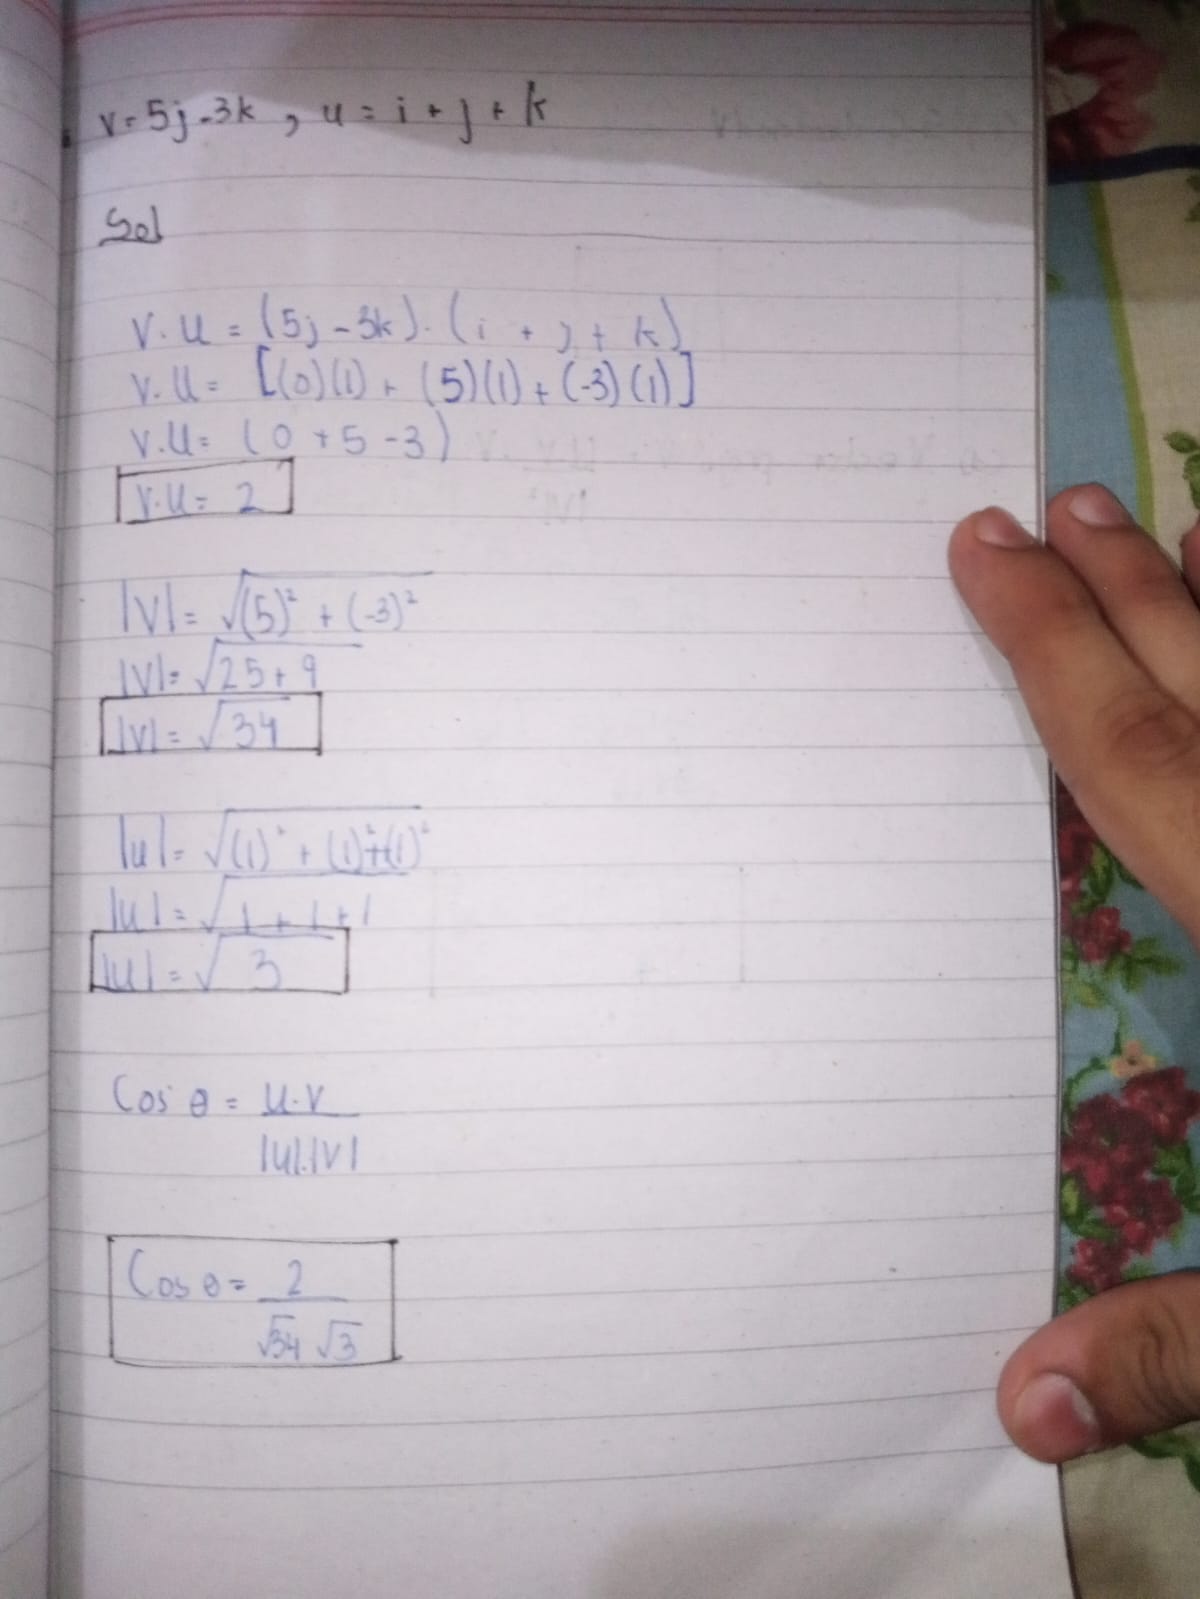 v = 5j - 3k , u = i + j + k
Sol
V.U = (5j - 3k) . (i + j + k)
V.U = [(0)(1) + (5)(1) + (-3)(1)]
V.U = (0 + 5 - 3)
V.U = 2
|V| = √(5)² + (-3)²
|V| = √25 + 9
|V| = √34
|u| = √(1)² + (1)² + (1)²
|u| = √1 + 1 + 1
|u| = √3
Cos θ = u.v
|u|.|v|
Cos θ = 2
√34 √3